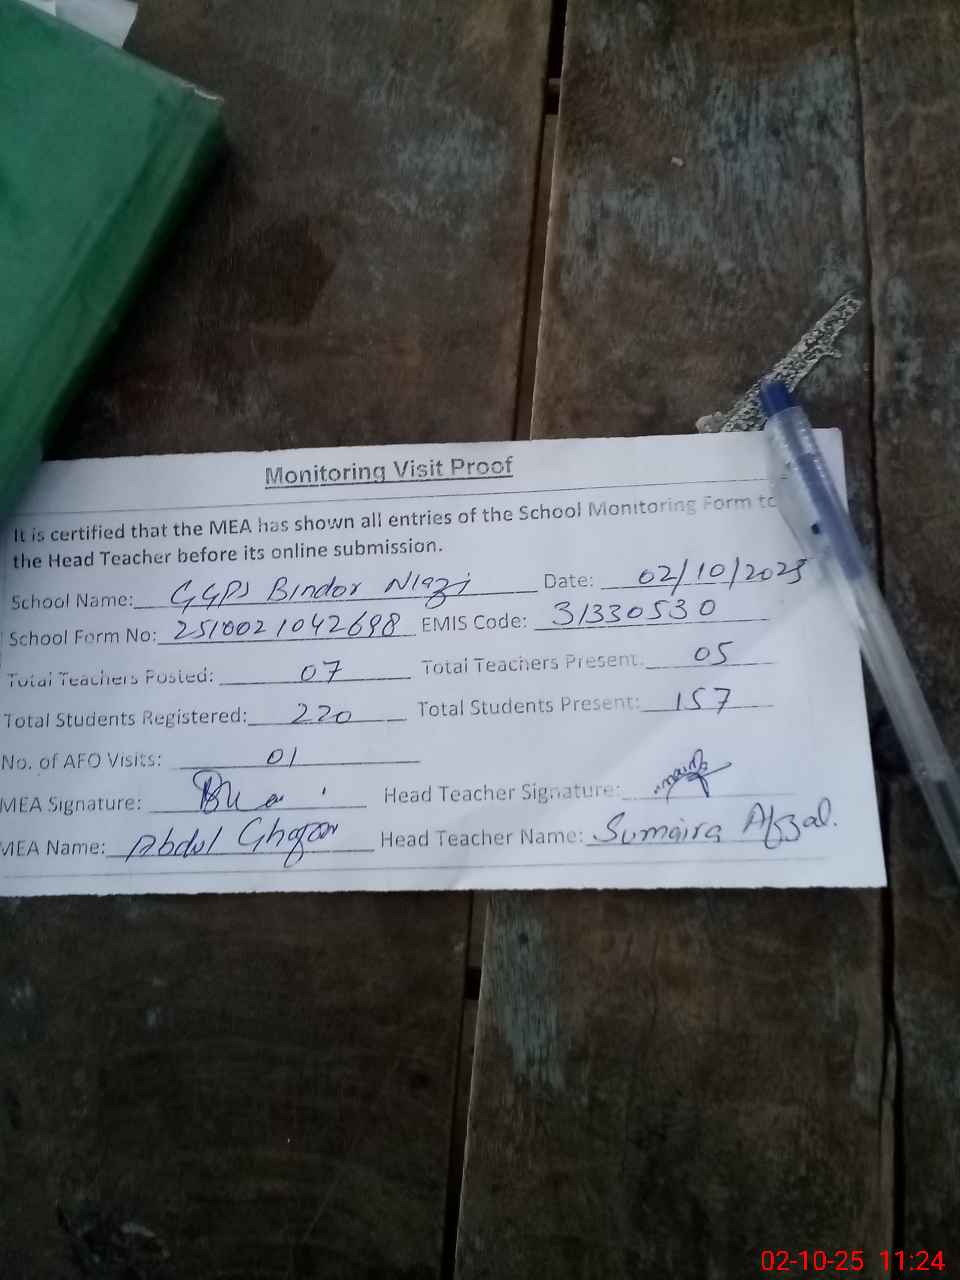 Monitoring Visit Proof
It is certified that the MEA has shown all entries of the School Monitoring Form to
the Head Teacher before its online submission.
School Name: GGPS Bindor Niazi Date: 02/10/2025
School Form No: 2510021042698 EMIS Code: 31330530
Total Teachers Posted: 07 Total Teachers Present: 05
Total Students Registered: 220 Total Students Present: 157
No. of AFO Visits: 01
MEA Signature: Head Teacher Signature:
MEA Name: Abdul Ghafar Head Teacher Name: Sumaira Afzal.
02-10-25 11:24